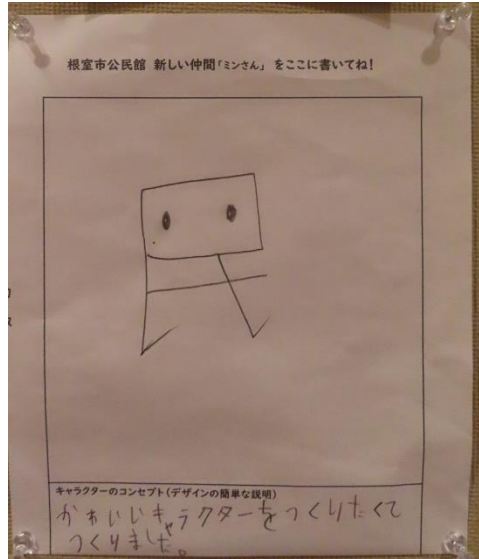 根室市公民館 新しい仲間「ミンさん」 をここに書いてね!
キャラクターのコンセプト(デザインの簡単な説明)
かわいいキャラクターをつくりたくて
つくりました。